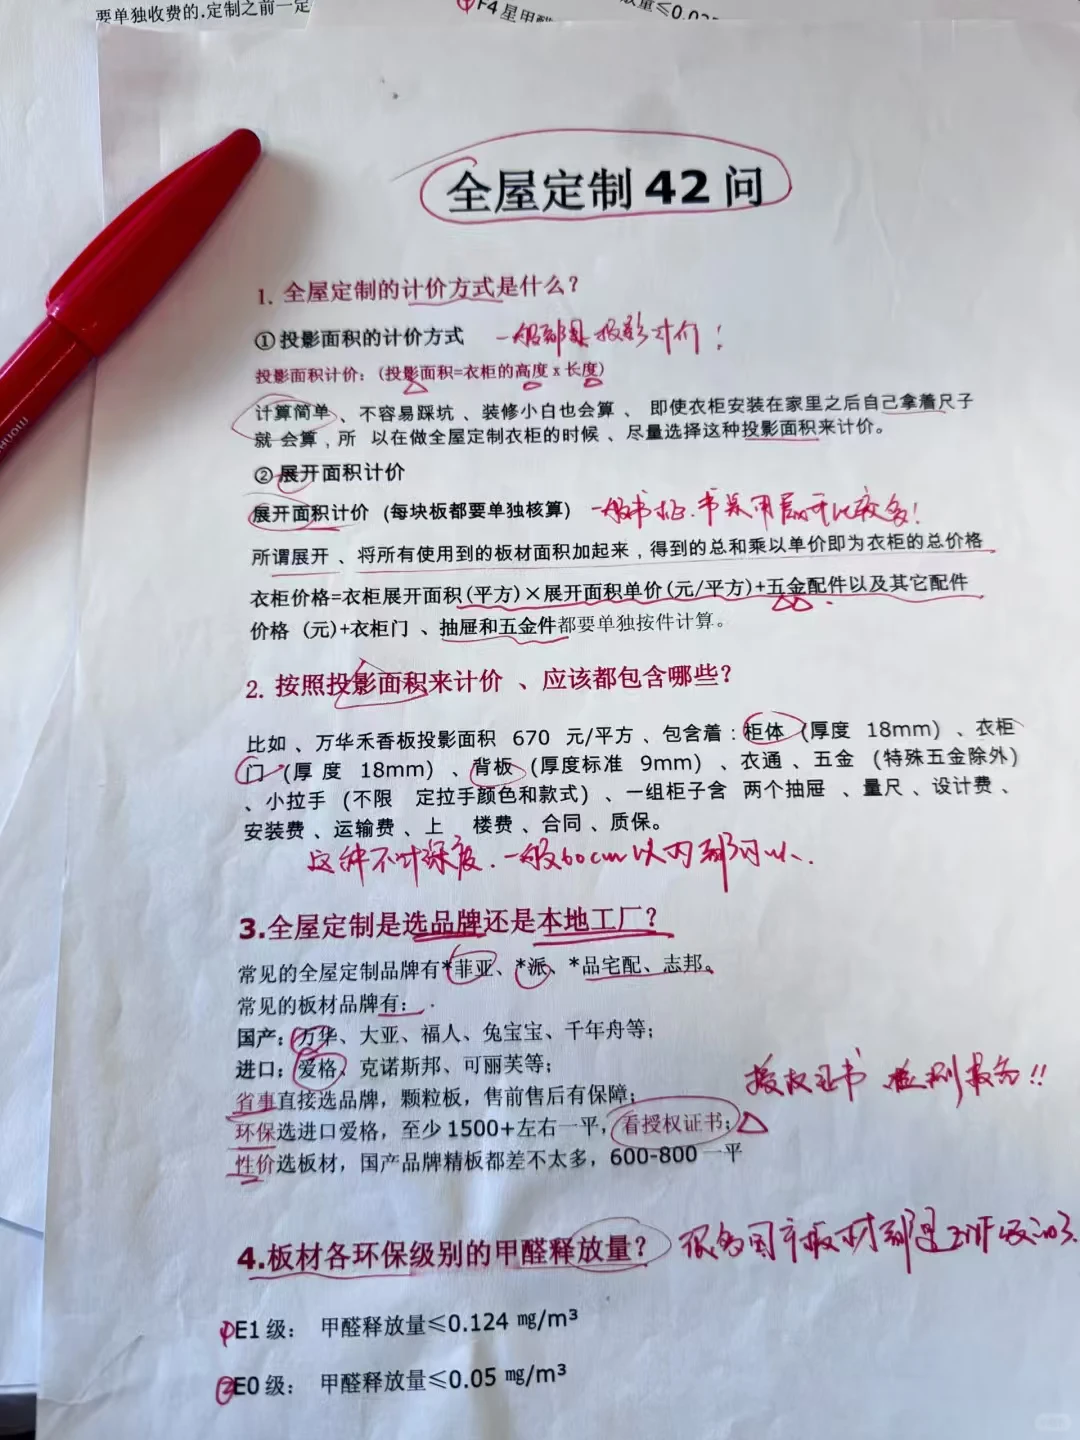 要单独收费的.定制之前一定
F4星甲醛
放量≤0.0
全屋定制 42 问
1. 全屋定制的计价方式是什么?
①投影面积的计价方式 一般都是投影计价!
投影面积计价:(投影面积=衣柜的高度 x 长度)
计算简单、不容易踩坑 、装修小白也会算 、 即使衣柜安装在家里之后自己拿着尺子
就 会算,所 以在做全屋定制衣柜的时候 、尽量选择这种投影面积来计价。
② 展开面积计价
展开面积计价 (每块板都要单独核算) 一般书柜.书桌用展开比较多!
所谓展开 、将所有使用到的板材面积加起来,得到的总和乘以单价即为衣柜的总价格
衣柜价格=衣柜展开面积(平方)×展开面积单价(元/平方)+五金配件以及其它配件
价格 (元)+衣柜门 、抽屉和五金件都要单独按件计算。
2. 按照投影面积来计价 、应该都包含哪些?
比如 、万华禾香板投影面积 670 元/平方 、包含着:柜体 (厚度 18mm) 、衣柜
门 (厚 度 18mm) 、背板 (厚度标准 9mm) 、衣通 、五金 (特殊五金除外)
、小拉手 (不限 定拉手颜色和款式) 、一组柜子含 两个抽屉 、量尺 、设计费 、
安装费 、运输费 、上 楼费 、合同 、质保。
这种不计深度.一般60cm以内都可以.
3.全屋定制是选品牌还是本地工厂?
常见的全屋定制品牌有*菲亚、*派、*品宅配、志邦。
常见的板材品牌有:
国产:万华、大亚、福人、兔宝宝、千年舟等;
进口:爱格、克诺斯邦、可丽芙等;
省事直接选品牌,颗粒板,售前售后有保障;
授权证书 检测报告!!
环保选进口爱格,至少 1500+左右一平,看授权证书;
性价选板材,国产品牌精板都差不太多,600-800 一平
4.板材各环保级别的甲醛释放量? 很多国产板材都是
①E1 级: 甲醛释放量≤0.124 ㎎/m³
②E0 级: 甲醛释放量≤0.05 ㎎/m³